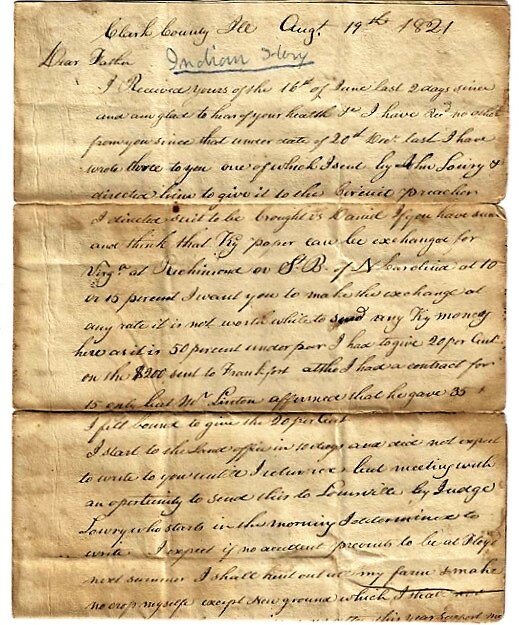 Clark County Ill Augt 19th 1821
Indian Story
Dear Father
I Received yours of the 16th of June last 2 days since
and am glad to hear of your health &c I have Recd no other
from you since that under date of 20th Decr last I have
wrote three to you one of which I sent by John Lowry &
directed him to give it to the Circuit preacher
I directed sent to be brought is Daniel If you have seen
and think that Ky paper can be exchanged for
Virga at Richmond or S. B. of N Carolina at 10
or 15 percent I want you to make the exchange at
any rate it is not worth while to send any Ky money
here as it is 50 percent under par I had to give 20 per Cent
on the $200 sent to Frankfort altho I had a contract for
15 only but Mr Linton affirmed that he gave 35 &
I felt bound to give the 20 per Cent
I start to the Land office in 10 days and did not expect
to write to you until I returned but meeting with
an oportunity to send this to Louisville by Judge
Lowry who starts in the morning I determined to
write I expect if no accident prevents to be at Floyds
next summer I shall rent out my farm & make
no crop myself except New ground which I shall not
this year